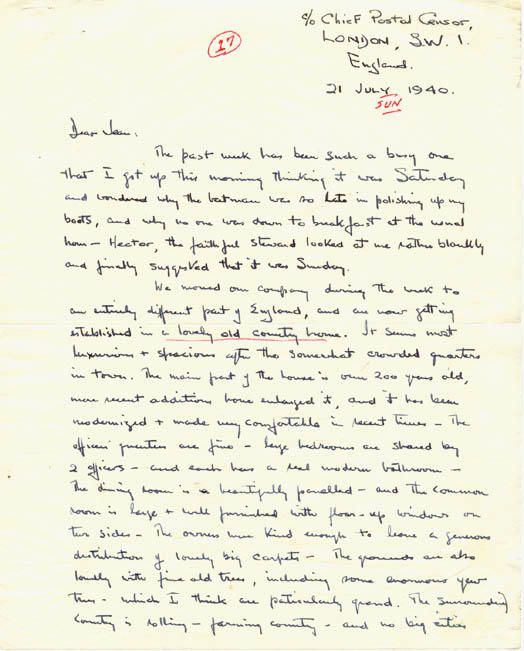 c/o Chief Postal Censor,
LONDON, S.W. 1.
England.
17
21 July 1940.
SUN
Dear Jean:
The past week has been such a busy one
that I got up this morning thinking it was Saturday
and wondered why the batman was so late in polishing up my
boots, and why no one was down to breakfast at the usual
hour – Hector, the faithful steward looked at me rather blankly
and finally suggested that it was Sunday.
We moved our company during the week to
an entirely different part of England, and are now getting
established in a lovely old country home. It seems most
luxurious + spacious after the somewhat crowded quarters
in town. The main part of the house is over 200 years old,
more recent additions have enlarged it, and it has been
modernized + made very comfortable in recent times – The
officers quarters are fine – large bedrooms are shared by
2 officers – and each has a real modern bathroom –
The dining room is a beautifully panelled – and the common
room is large + well furnished with floor-up windows on
two sides – The owners were kind enough to leave a generous
distribution of lovely big carpets – The grounds are also
lovely with fine old trees, including some enormous yew
trees – which I think are particularly grand. The surrounding
country is rolling – farming country – and no big cities